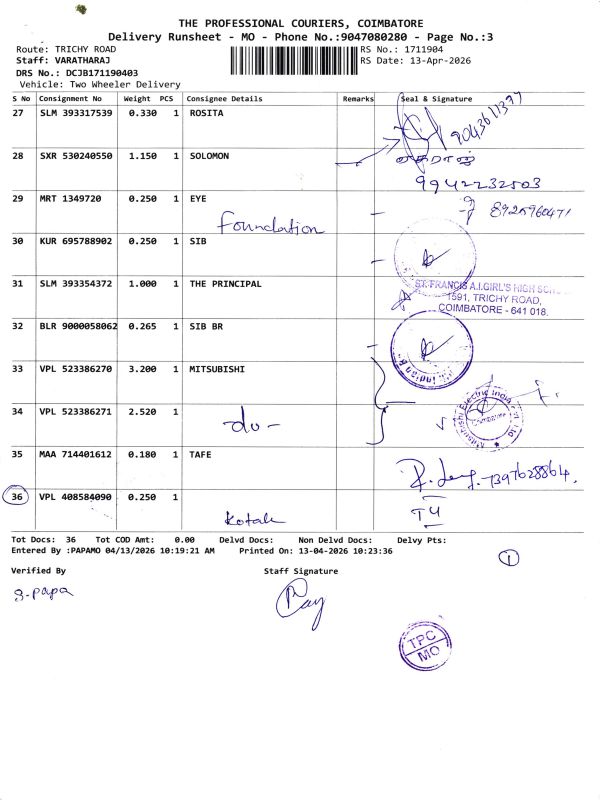 THE PROFESSIONAL COURIERS, COIMBATORE
Delivery Runsheet - MO - Phone No.:9047080280 - Page No.:3
Route: TRICHY ROAD
RS No.: 1711904
Staff: VARATHARAJ
RS Date: 13-Apr-2026
DRS No.: DCJB171190403
Vehicle: Two Wheeler Delivery
S No Consignment No Weight PCS Consignee Details Remarks Seal & Signature
27 SLM 393317539 0.330 1 ROSITA
28 SXR 530240550 1.150 1 SOLOMON
9942232503
29 MRT 1349720 0.250 1 EYE
Foundation 8925960471
30 KUR 695788902 0.250 1 SIB
31 SLM 393354372 1.000 1 THE PRINCIPAL
ST. FRANCIS A.I.GIRL'S HIGH
1591, TRICHY ROAD,
COIMBATORE - 641 018.
32 BLR 9000058062 0.265 1 SIB BR
33 VPL 523386270 3.200 1 MITSUBISHI
34 VPL 523386271 2.520 1
-do-
Mitsubishi Electric India Pvt Ltd
Coimbatore
35 MAA 714401612 0.180 1 TAFE
7397628864
36 VPL 408584090 0.250 1
Kotak
Tot Docs: 36 Tot COD Amt: 0.00 Delvd Docs: Non Delvd Docs: Delvy Pts:
Entered By :PAPAMO 04/13/2026 10:19:21 AM Printed On: 13-04-2026 10:23:36
1
Verified By Staff Signature
S. Papa
TPC
MO